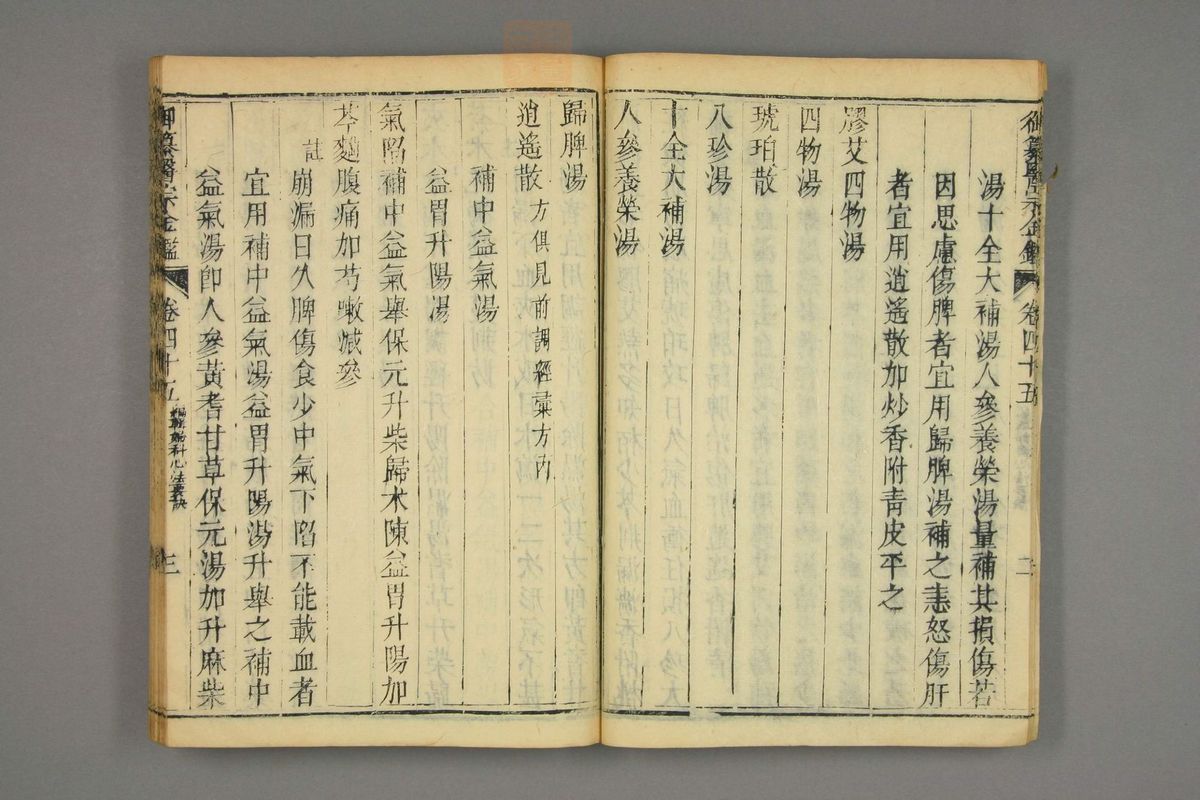 御纂醫宗金鑑 卷四十五 二
湯十全大補湯人參養榮湯量補其損傷若
因思慮傷脾者宜用歸脾湯補之恚怒傷肝
者宜用逍遙散加炒香附青皮平之
膠艾四物湯
四物湯
琥珀散
八珍湯
十全大補湯
人參養榮湯
歸脾湯
逍遙散 方俱見前調經彙方內
補中益氣湯
益胃升陽湯
氣陷補中益氣舉保元升柴歸术陳益胃升陽加
芩麯腹痛加芍嗽減參
註崩漏日久脾傷食少中氣下陷不能載血者
宜用補中益氣湯益胃升陽湯升舉之補中
益氣湯卽人參黃耆甘草保元湯加升麻柴
御纂醫宗金鑑 卷四十五 編輯婦科心法要訣 三